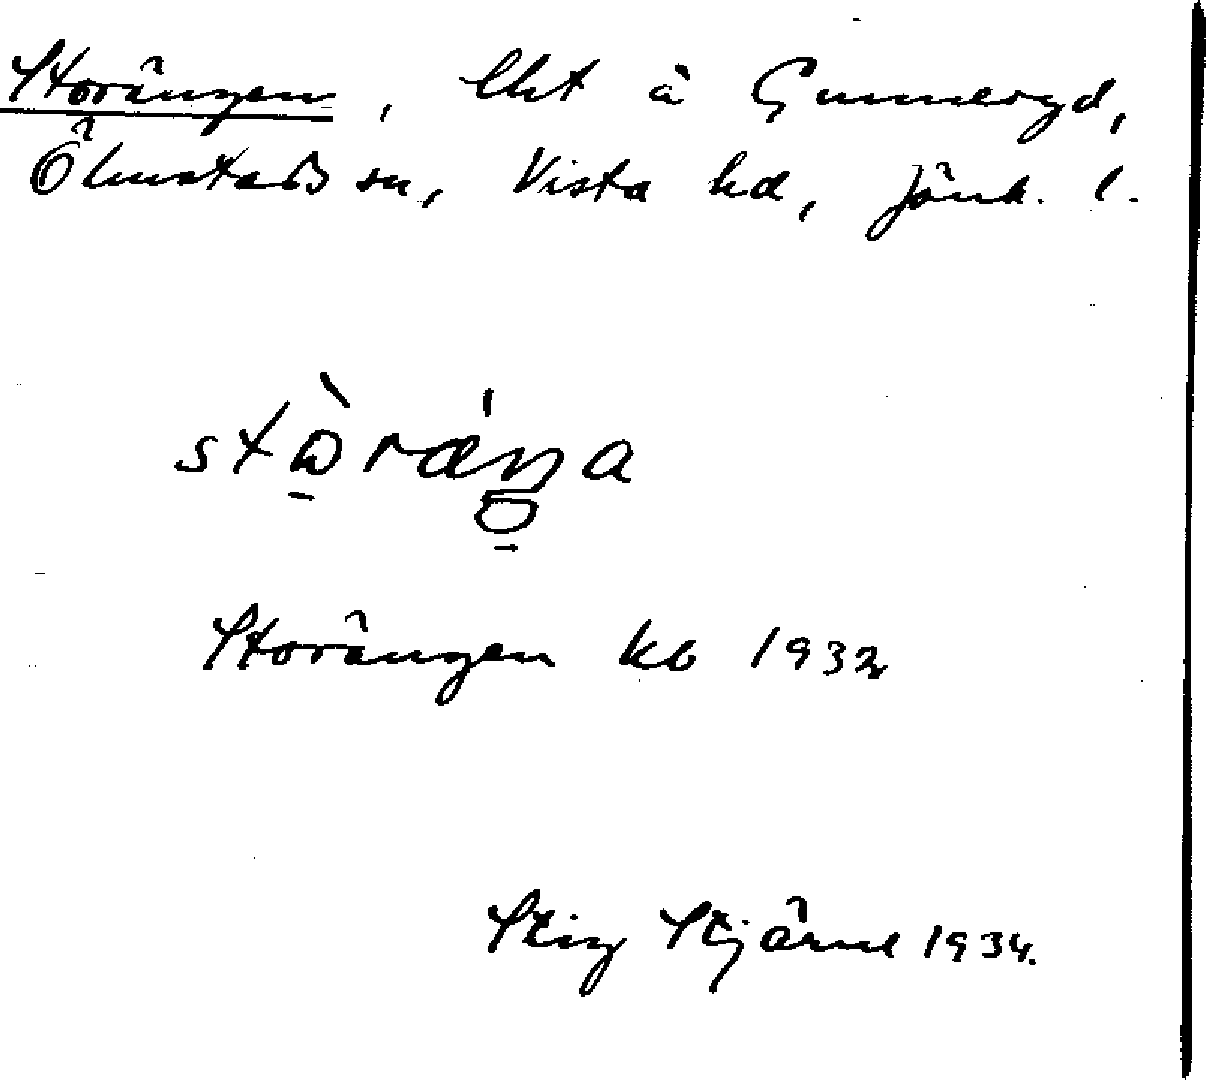 Storängen, lht å Gunneryd,
Ölmstads sn, Vista hd, Jönk. l.
stòræ̀ŋa
Storängen kb 1932
Stig Stjärne 1934.